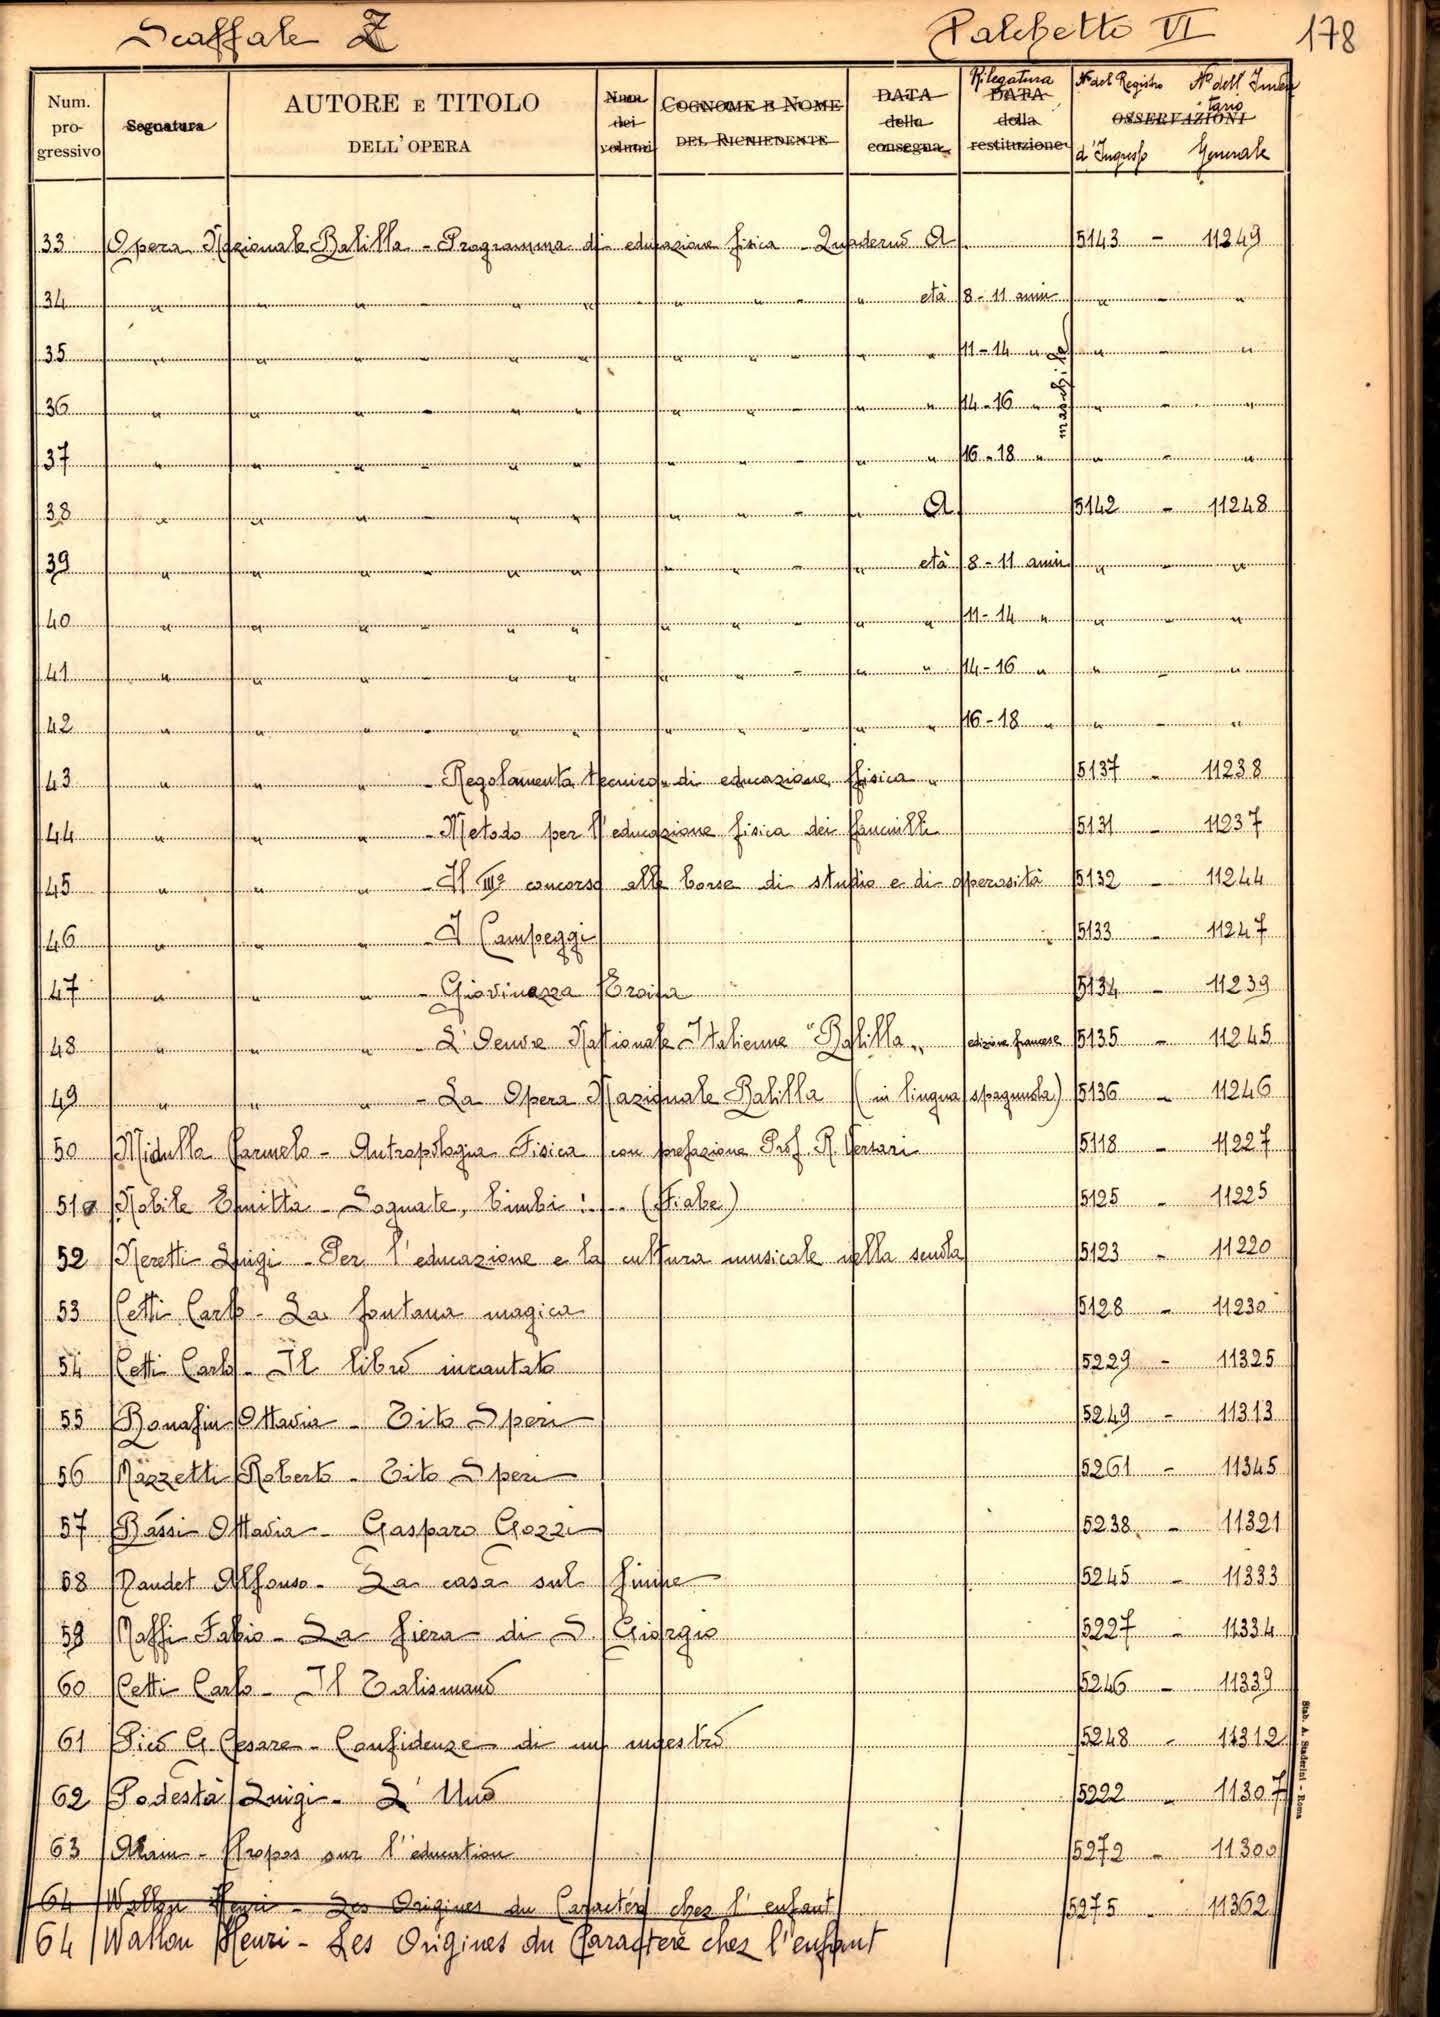 Scaffale Z Palchetto VI 178
Num. progressivo Segnatura AUTORE E TITOLO DELL'OPERA Num. dei volumi COGNOME E NOME DEL RICHIEDENTE DATA della consegna Rilegatura DATA della restituzione N° del Registro d'Ingresso OSSERVAZIONI N° dell'Inventario Generale
33 Opera Nazionale Balilla - Programma di educazione fisica - Quaderno A. 5143 - 11249
34 " " " - " " " " - " età 8-11 anni " - "
35 " " " - " " " " - " " 11-14 " " - "
36 " " " - " " " " - " " 14-16 " " - "
maschile
37 " " " - " " " " - " " 16-18 " " - "
38 " " " - " " " " - " A. 5142 - 11248
39 " " " - " " " " - " età 8-11 anni " - "
40 " " " - " " " " - " " 11-14 " " - "
41 " " " - " " " " - " " 14-16 " " - "
42 " " " - " " " " - " " 16-18 " " - "
43 " " " - Regolamento tecnico di educazione fisica 5137 - 11238
44 " " " - Metodo per l'educazione fisica dei fanciulli 5131 - 11237
45 " " " - Il III° concorso alle borse di studio e di operosità 5132 - 11244
46 " " " - I Campeggi 5133 - 11247
47 " " " - Giovinezza Eroica 5134 - 11239
48 " " " - L'Oeuvre Nationale Italienne "Balilla" edizione francese 5135 - 11245
49 " " " - La Opera Nazionale Balilla (in lingua spagnuola) 5136 - 11246
50 Midulla Carmelo - Antropologia Fisica con prefazione Prof. R. Versari 5118 - 11227
51 Nobile Emitta - Sognate, bimbi!... (Fiabe) 5125 - 11225
52 Neretti Luigi - Per l'educazione e la cultura musicale nella scuola 5123 - 11220
53 Cetti Carlo - La fontana magica 5128 - 11230
54 Cetti Carlo - Il libro incantato 5229 - 11325
55 Bonafin Ottavia - Tito Speri 5249 - 11313
56 Mazzetti Roberto - Tito Speri 5261 - 11345
57 Bassi Ottavia - Gasparo Gozzi 5238 - 11321
58 Daudet Alfonso - La casa sul fiume 5245 - 11333
59 Maffi Fabio - La fiera di S. Giorgio 5227 - 11334
60 Cetti Carlo - Il Talismano 5246 - 11339
61 Picò G. Cesare - Confidenze di un maestro 5248 - 11312
62 Podestà Luigi - L'Uno 5222 - 11307
63 Alain - Propos sur l'éducation 5272 - 11300
64 Wallon Henri - Les Origines du Caractère chez l'enfant 5275 - 11362
64 Wallon Henri - Les Origines du Caractère chez l'enfant
Stab. A. Staderini - Roma